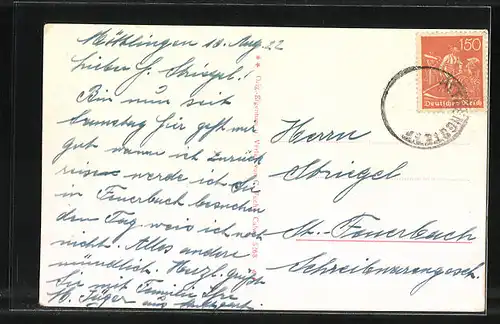 Möttlingen 18. Aug. 22
Lieber H. Striegel!
Bin nun seit
Samstag hier geht mir
gut wann ich zurück
reise werde ich Sie
in Feuerbach besuchen
den Tag weis ich noch
nicht. Alles andere
mündlich. Herzl. grüßt
Sie mit Familie Ihr
H. Jäger aus
150
Deutsches Reich
Herrn
Striegel
St. Feuerbach
Schreibwarengesch.